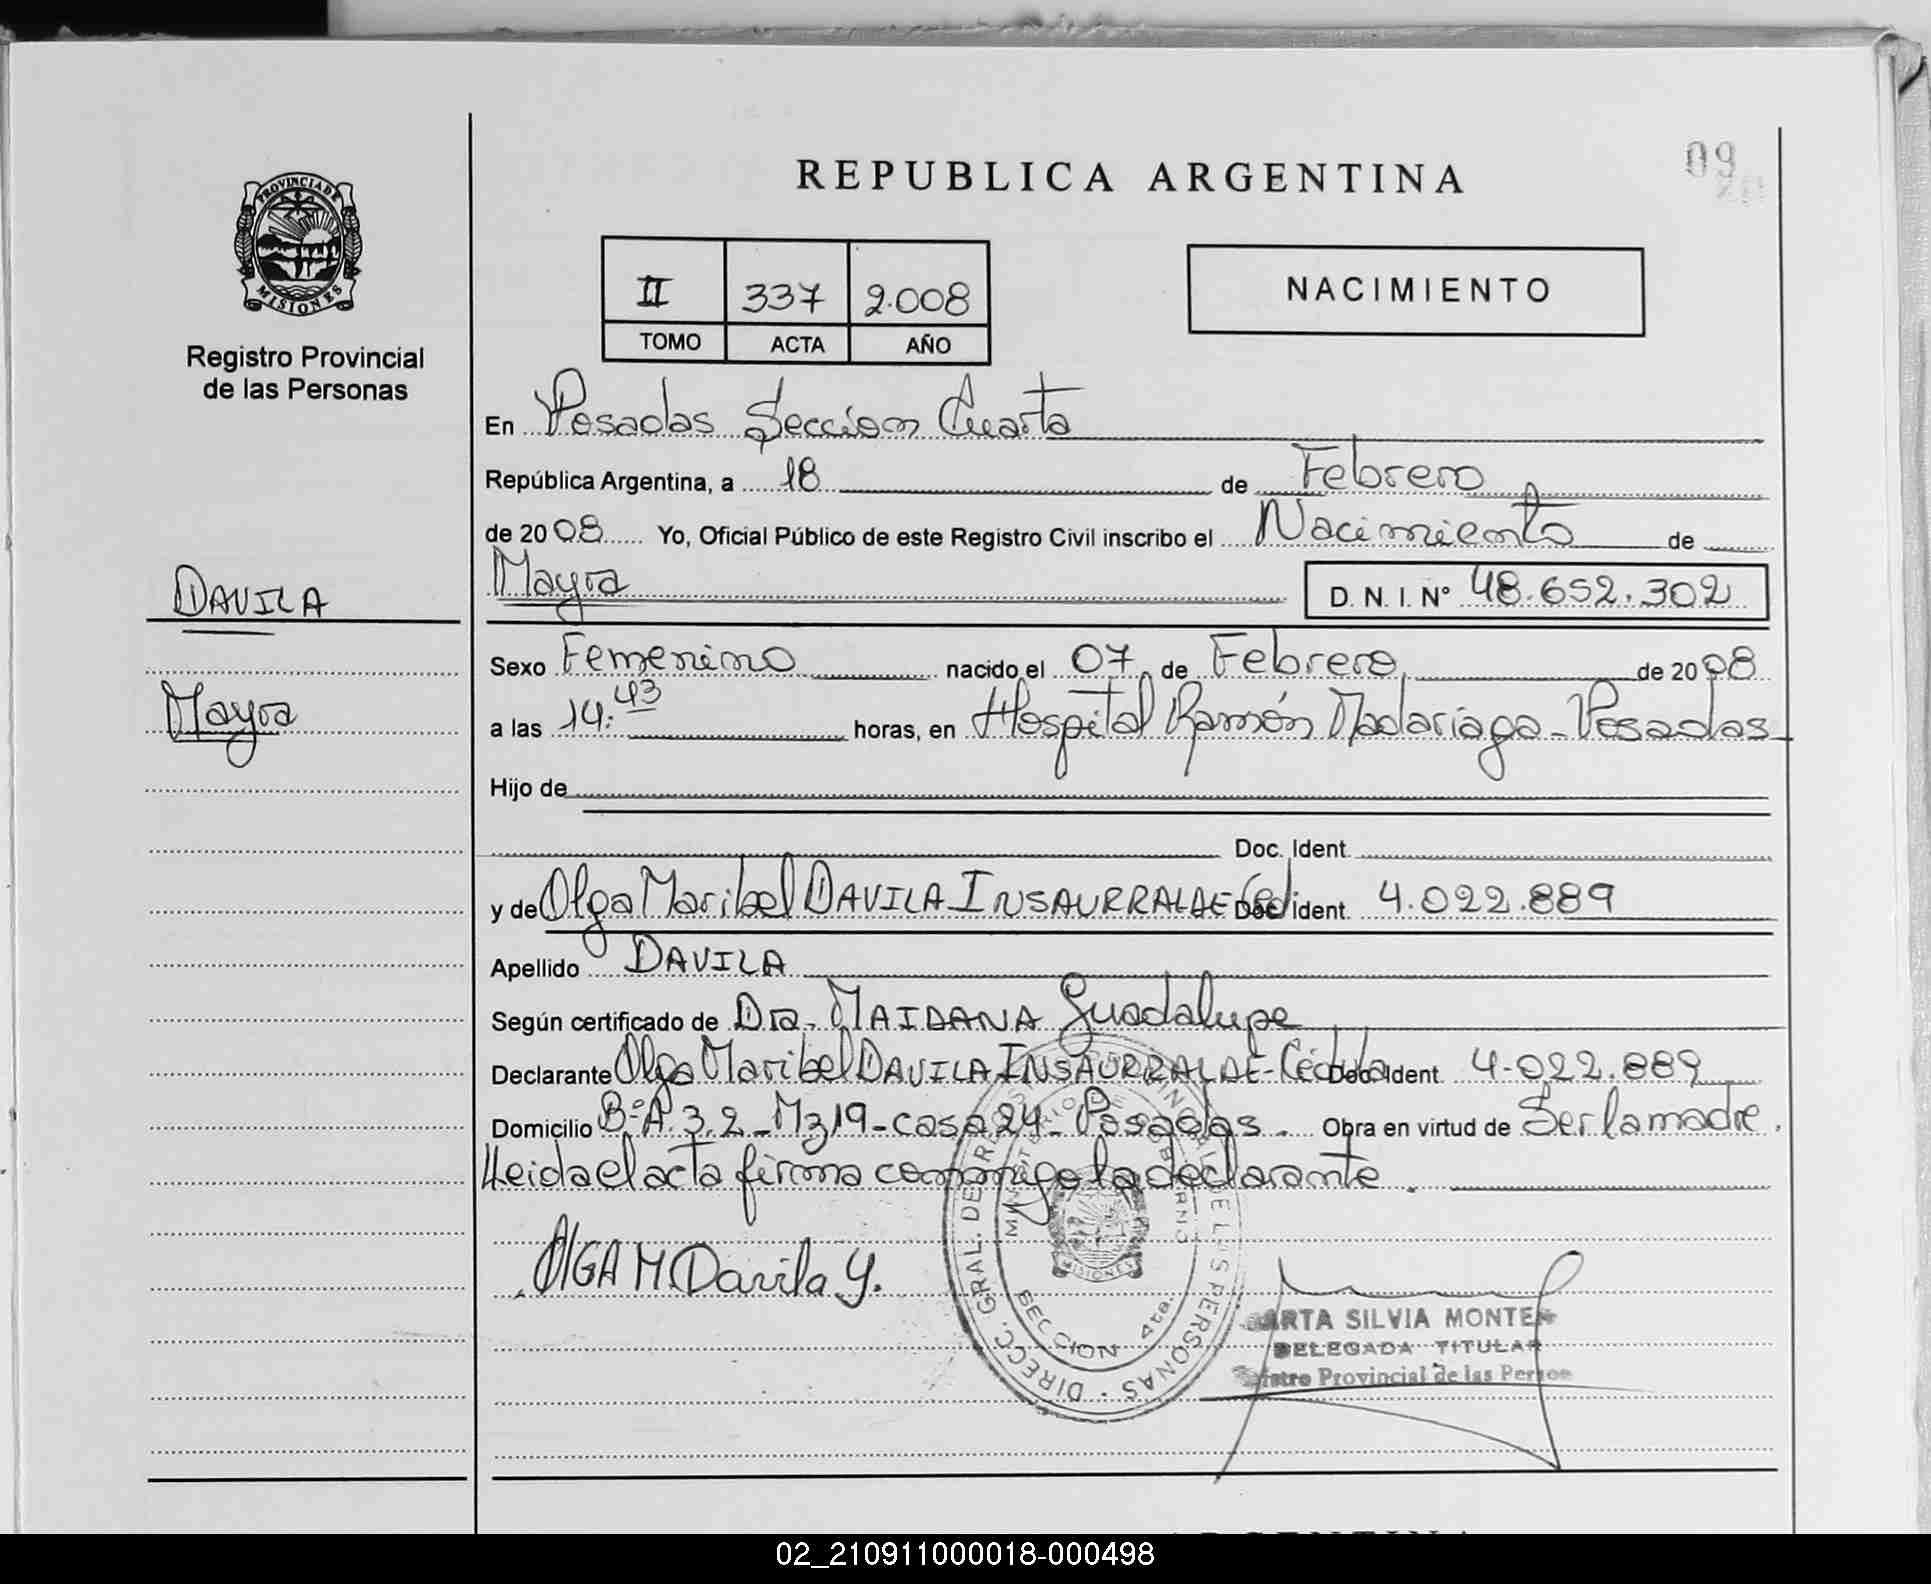 REPUBLICA ARGENTINA
09
PROVINCIA DE
MISIONES
Registro Provincial
de las Personas
II 337 2.008
TOMO ACTA AÑO
NACIMIENTO
En Posadas Seccion Cuarta
República Argentina, a 18 de Febrero
de 2008 Yo, Oficial Público de este Registro Civil inscribo el Nacimiento de
DAVILA
Mayra D. N. I. Nº 48.652.302
Sexo Femenino nacido el 07 de Febrero de 2008
Mayra
a las 14:43 horas, en Hospital Ramón Madariaga - Posadas
Hijo de
Doc. Ident.
y de Olga Maribel DAVILA INSAURRALDE Ced Doc. Ident. 4.022.889
Apellido DAVILA
Según certificado de Dra. MAIDANA Guadalupe
Declarante Olga Maribel DAVILA INSAURRALDE - Cédula Doc. Ident 4.022.889
Domicilio B° A.3.2 - Mz 19 - casa 24 - Posadas. Obra en virtud de Ser la madre.
Leida el acta firma conmigo la declarante.
OLGA M Davila Y.
DIRECC. GRAL. DE DE LAS PERSONAS
MISIONES
SECCION 4ta.
ARTA SILVIA MONTE
DELEGADA TITULAR
Provincial de las Person
02_210911000018-000498